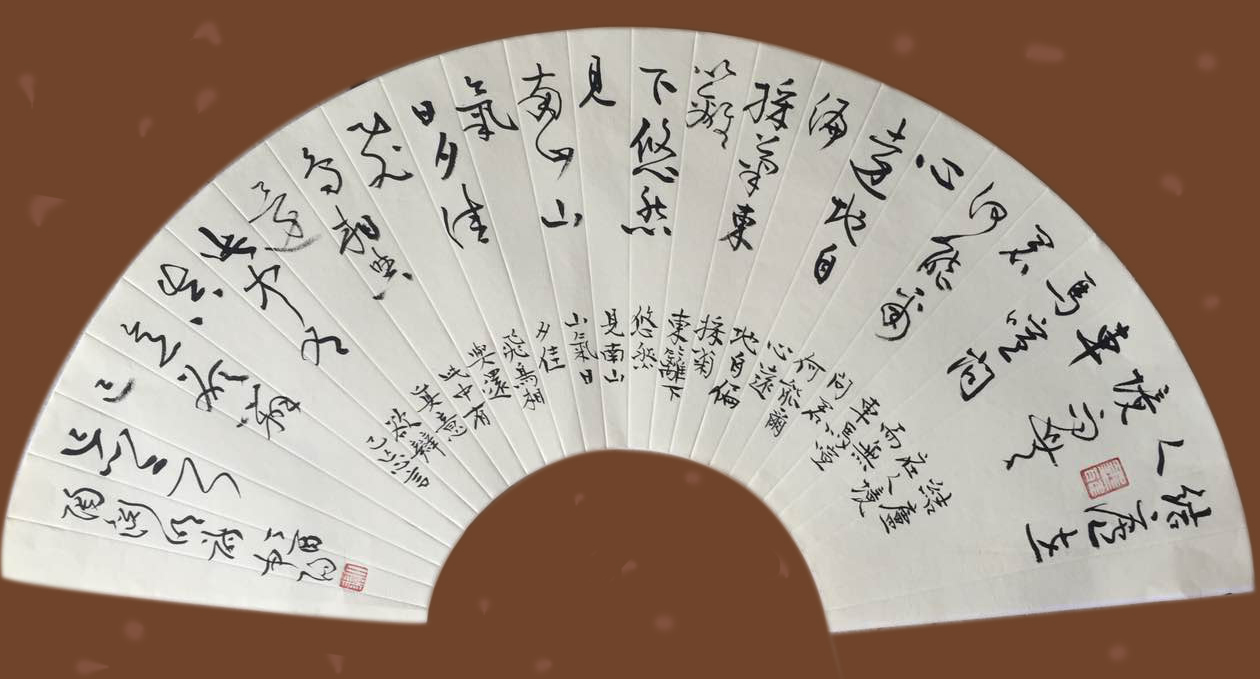 結廬在
人
境而無
車
馬喧問
君
何能爾
心
遠地自
偏
採菊東
籬
下悠然
見
南山山
氣
日夕佳
飛
鳥相與
還
此中有
真
意欲辯
已
忘言
結廬
在人境
而無
車馬喧
問君
何能爾
心遠
地自偏
採菊
東籬下
悠然
見南山
山氣日
夕佳
飛鳥相
與還
此中有
真意
欲辯
已忘言